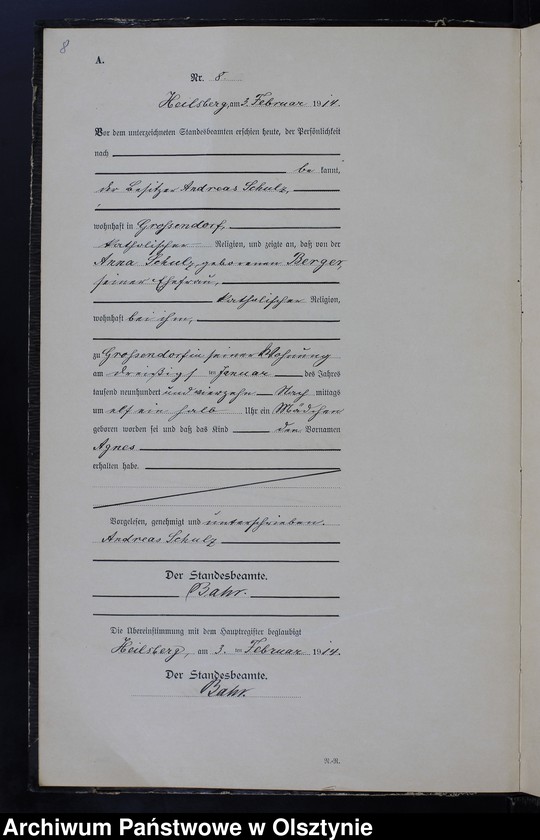 8
A.
Nr. 8.
Heilsberg, am 3. Februar 1914.
Vor dem unterzeichneten Standesbeamten erschien heute, der Persönlichkeit
nach
be kannt,
der Besitzer Andreas Schulz,
wohnhaft in Grossendorf,
katholischer Religion, und zeigte an, daß von der
Anna Schulz, geborenen Berger,
seiner Ehefrau,
katholischer Religion,
wohnhaft bei ihm,
zu Grossendorf in seiner Wohnung
am dreißigsten Januar des Jahres
tausend neunhundert und vierzehn Nach mittags
um elf ein halb Uhr ein Mädchen
geboren worden sei und daß das Kind den Vornamen
Agnes
erhalten habe.
Vorgelesen, genehmigt und unterschrieben.
Andreas Schulz
Der Standesbeamte.
Bahr.
Die Übereinstimmung mit dem Hauptregister beglaubigt
Heilsberg, am 3. ten Februar 1914.
Der Standesbeamte.
Bahr.
Archiwum Państwowe w Olsztynie